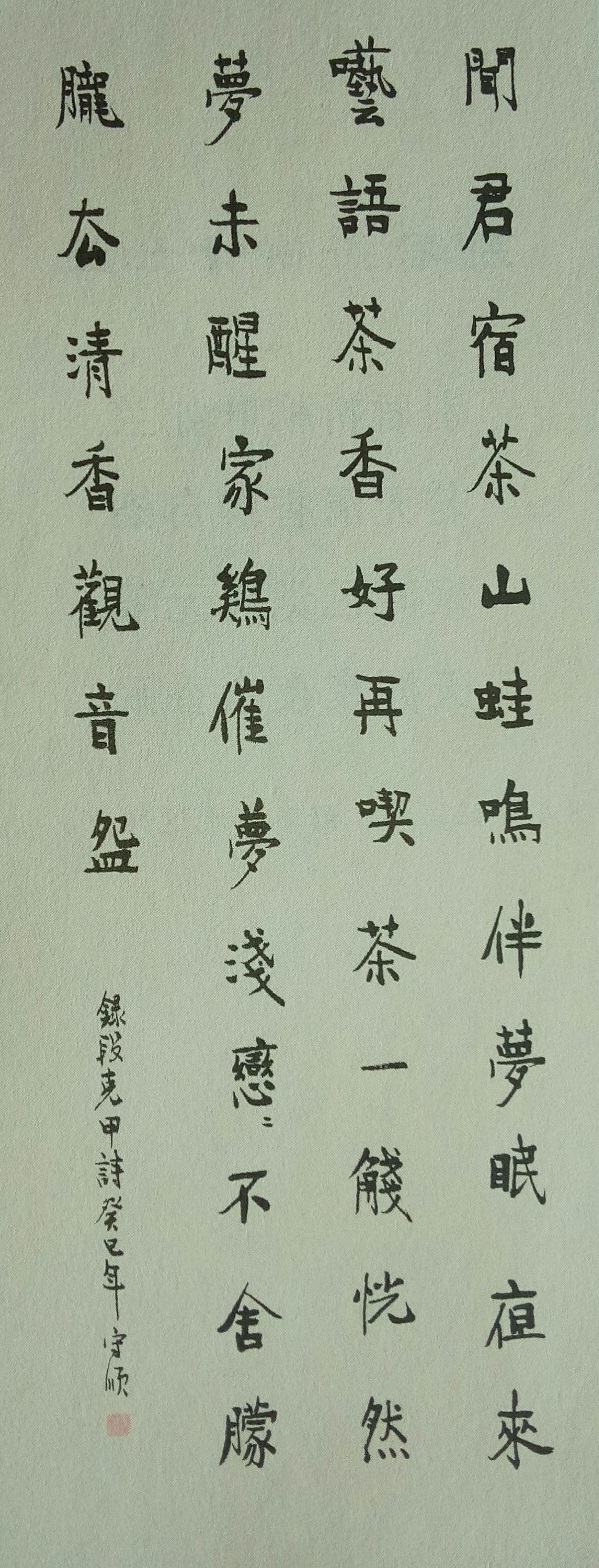 聞君宿茶山蛙鳴伴夢眠亱來
囈語茶香好再喫茶一恍然
夢未醒家鷄催夢淺戀〻不舍朦
朧厺清香觀音盌
錄段克甲詩癸巳年守順